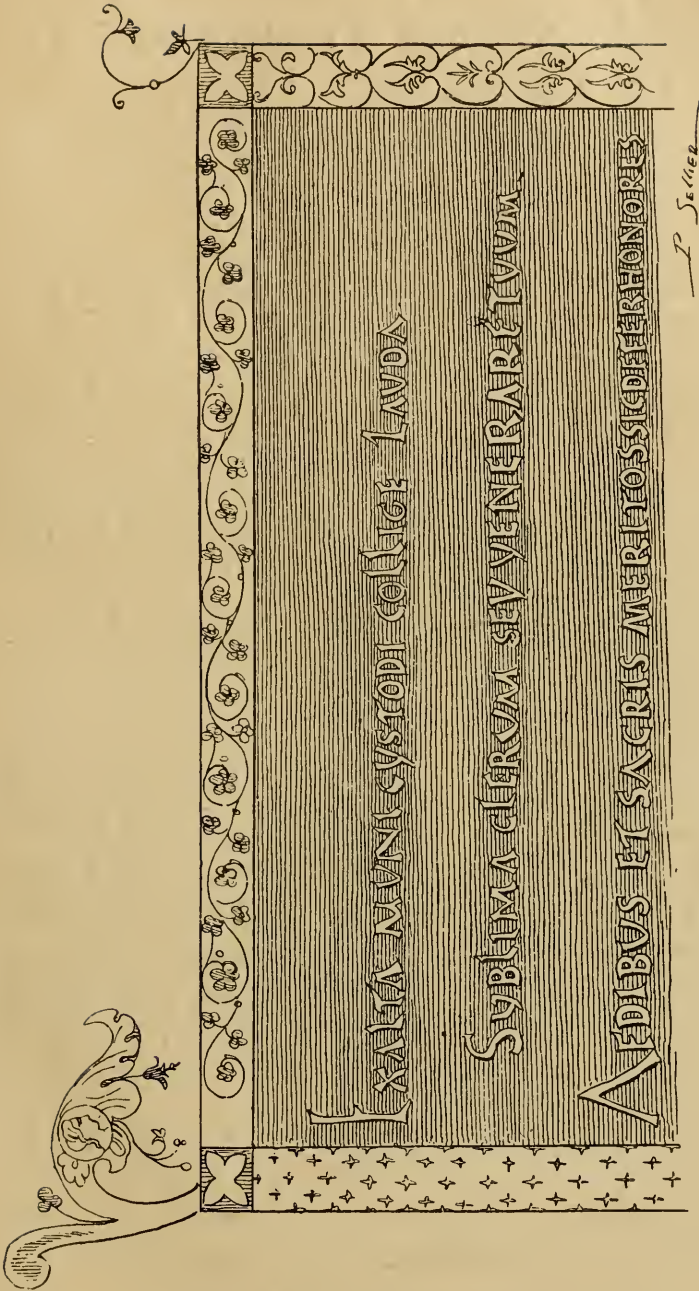 EXALTA MVNI CVSTODI COLLIGE LAVDA
SVBLIMA CLERVM SEV VENERARE TVVM
AEDIBVS ET SACRIS MERITOS SIC DEFER HONORES
P Sellier